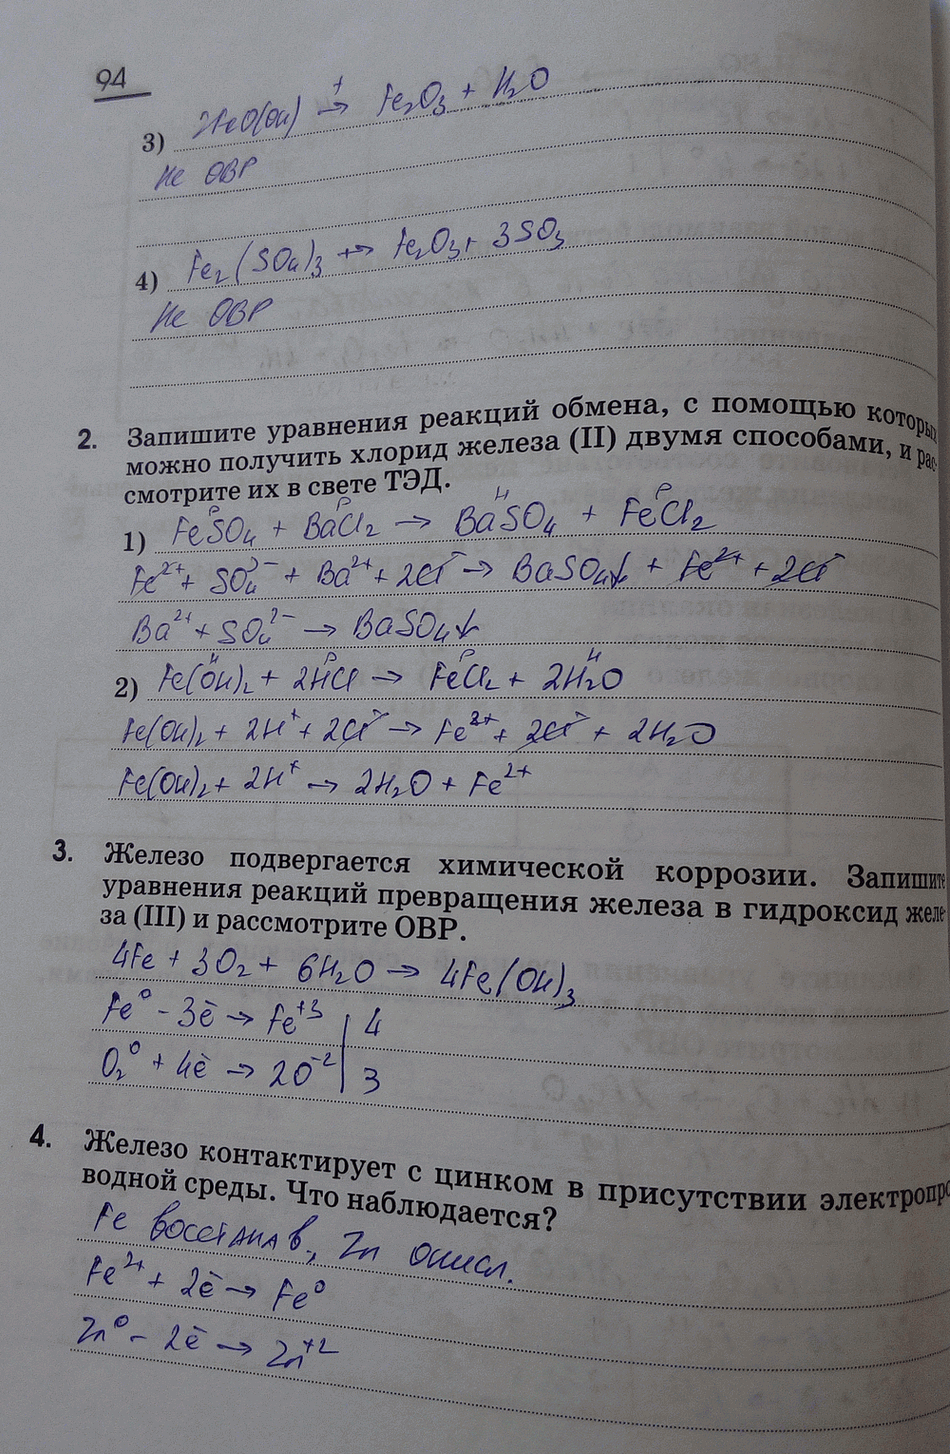 94
3) 2FeO(OH) →t Fe₂O₃ + H₂O
Не ОВР
4) Fe₂(SO₄)₃ t→ Fe₂O₃ + 3SO₃
Не ОВР
2. Запишите уравнения реакций обмена, с помощью которы
можно получить хлорид железа (II) двумя способами, и рас-
смотрите их в свете ТЭД.
Р Р Н Р
1) FeSO₄ + BaCl₂ → BaSO₄ + FeCl₂
Fe²⁺ + SO₄²⁻ + Ba²⁺ + 2Cl⁻ → BaSO₄↓ + Fe²⁺ + 2Cl⁻
Ba²⁺ + SO₄²⁻ → BaSO₄↓
Н Р Р Н
2) Fe(OH)₂ + 2HCl → FeCl₂ + 2H₂O
Fe(OH)₂ + 2H⁺ + 2Cl⁻ → Fe²⁺ + 2Cl⁻ + 2H₂O
Fe(OH)₂ + 2H⁺ → 2H₂O + Fe²⁺
3. Железо подвергается химической коррозии. Запишите
уравнения реакций превращения железа в гидроксид желе-
за (III) и рассмотрите ОВР.
4Fe + 3O₂ + 6H₂O → 4Fe(OH)₃
Fe⁰ - 3ē → Fe⁺³ | 4
O₂⁰ + 4ē → 2O⁻² | 3
4. Железо контактирует с цинком в присутствии электропро
водной среды. Что наблюдается?
Fe восстанав, Zn окисл.
Fe²⁺ + 2ē → Fe⁰
Zn⁰ - 2ē → Zn⁺²